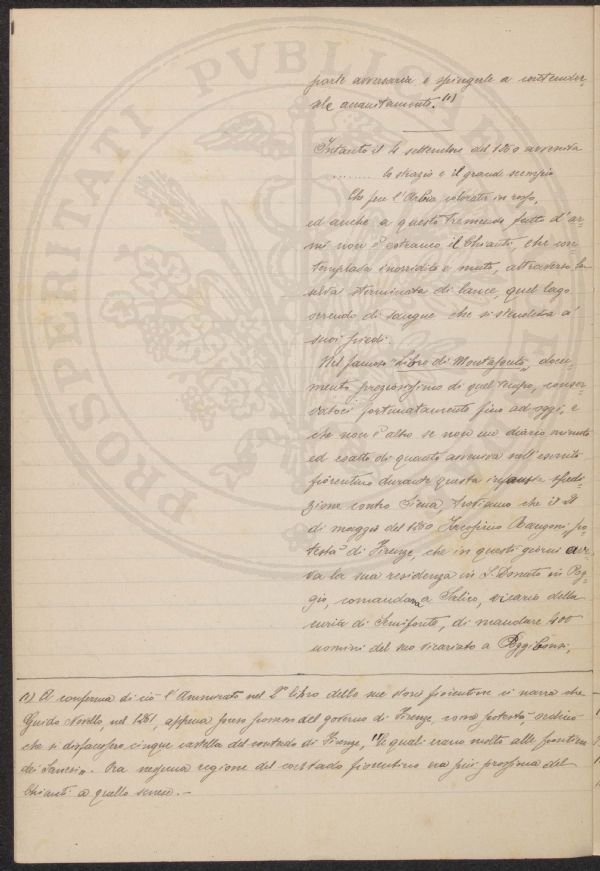 PROSPERITATI PVBLICAE
parte avversaria e spingerle a contender-
sele accanitamente. (1)
Intanto il 4 settembre del 1260 avveniva
......... lo strazio e il grande scempio
Che fece l'Arbia colorata in rosso,
ed anche a questo tremendo fatto d'ar-
mi non è estraneo il Chianti, che con-
templava inorridito e muto, attraverso la
selva sterminata di lance, quel lago
orrendo di sangue che si stendeva a'
suoi piedi.
Nel famoso "Libro di Montaperti" docu-
mento preziosissimo di quel tempo, conser-
vatoci fortunatamente fino ad oggi, e
che non è altro se non un diario minuto
ed esatto di quanto avveniva nell'esercito
fiorentino durante questa infausta spedi-
zione contro Siena, troviamo che il 2
di maggio del 1260 Jacopino Rangoni, po-
testà di Firenze, che in questi giorni ave-
va la sua residenza in S. Donato in Pog-
gio, comandava a Salico, vicario della
curia di Semifonte, di mandare 400
uomini del suo vicariato a Poggibonsi,
(1) A conferma di ciò l'Ammirato nel 2° libro delle sue storie fiorentine ci narra che
Guido Novello, nel 1261, appena preso possesso del governo di Firenze, come potestà, ordinò
che si disfacessero cinque castella del contado di Firenze, "le quali erano molto alle frontiere
dei Sanesi". Ora nessuna regione del contado fiorentino era più prossima del
Chianti a quello senese. -